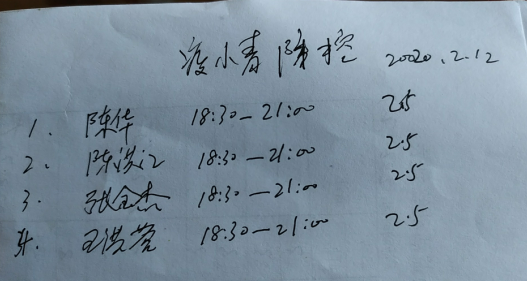 疫小青防控 2020.2.12
1. 陈华 18:30—21:00 2.5
2. 陈洪江 18:30—21:00 2.5
3. 张全杰 18:30—21:00 2.5
4. 王洪营 18:30—21:00 2.5